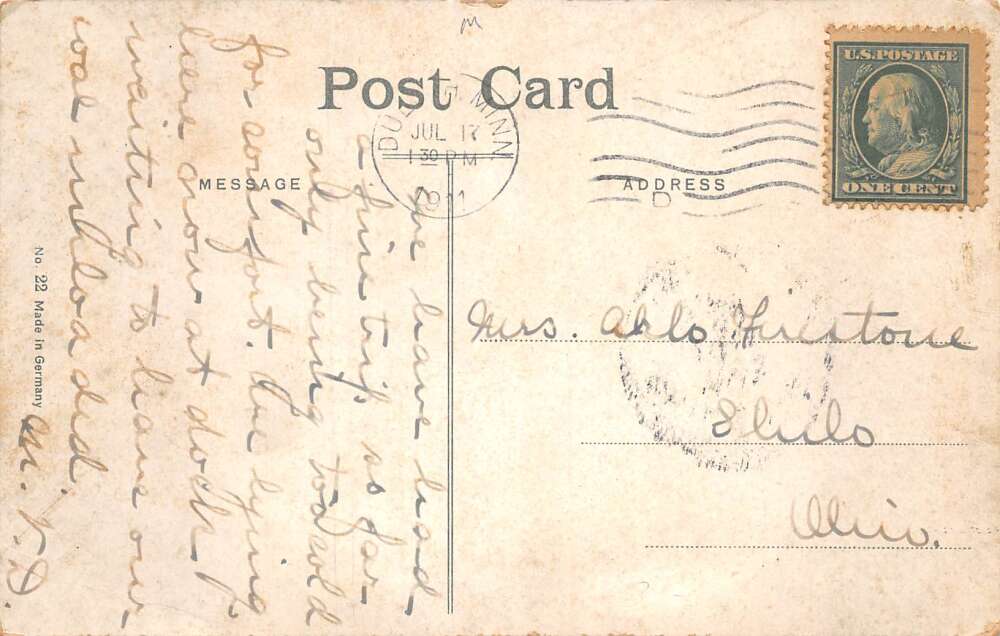 M
Post Card
MESSAGE
ADDRESS
U.S. POSTAGE
ONE CENT
DULUTH MINN
JUL 17
1 30 PM
1911
D
We have had
a fine trip so far
only being too cold
for comfort. Are lying
here now at dock
waiting to have our
coal unloaded.
M. V. D.
Mrs. Arlo Firestone
Ohio.
No. 22 Made in Germany